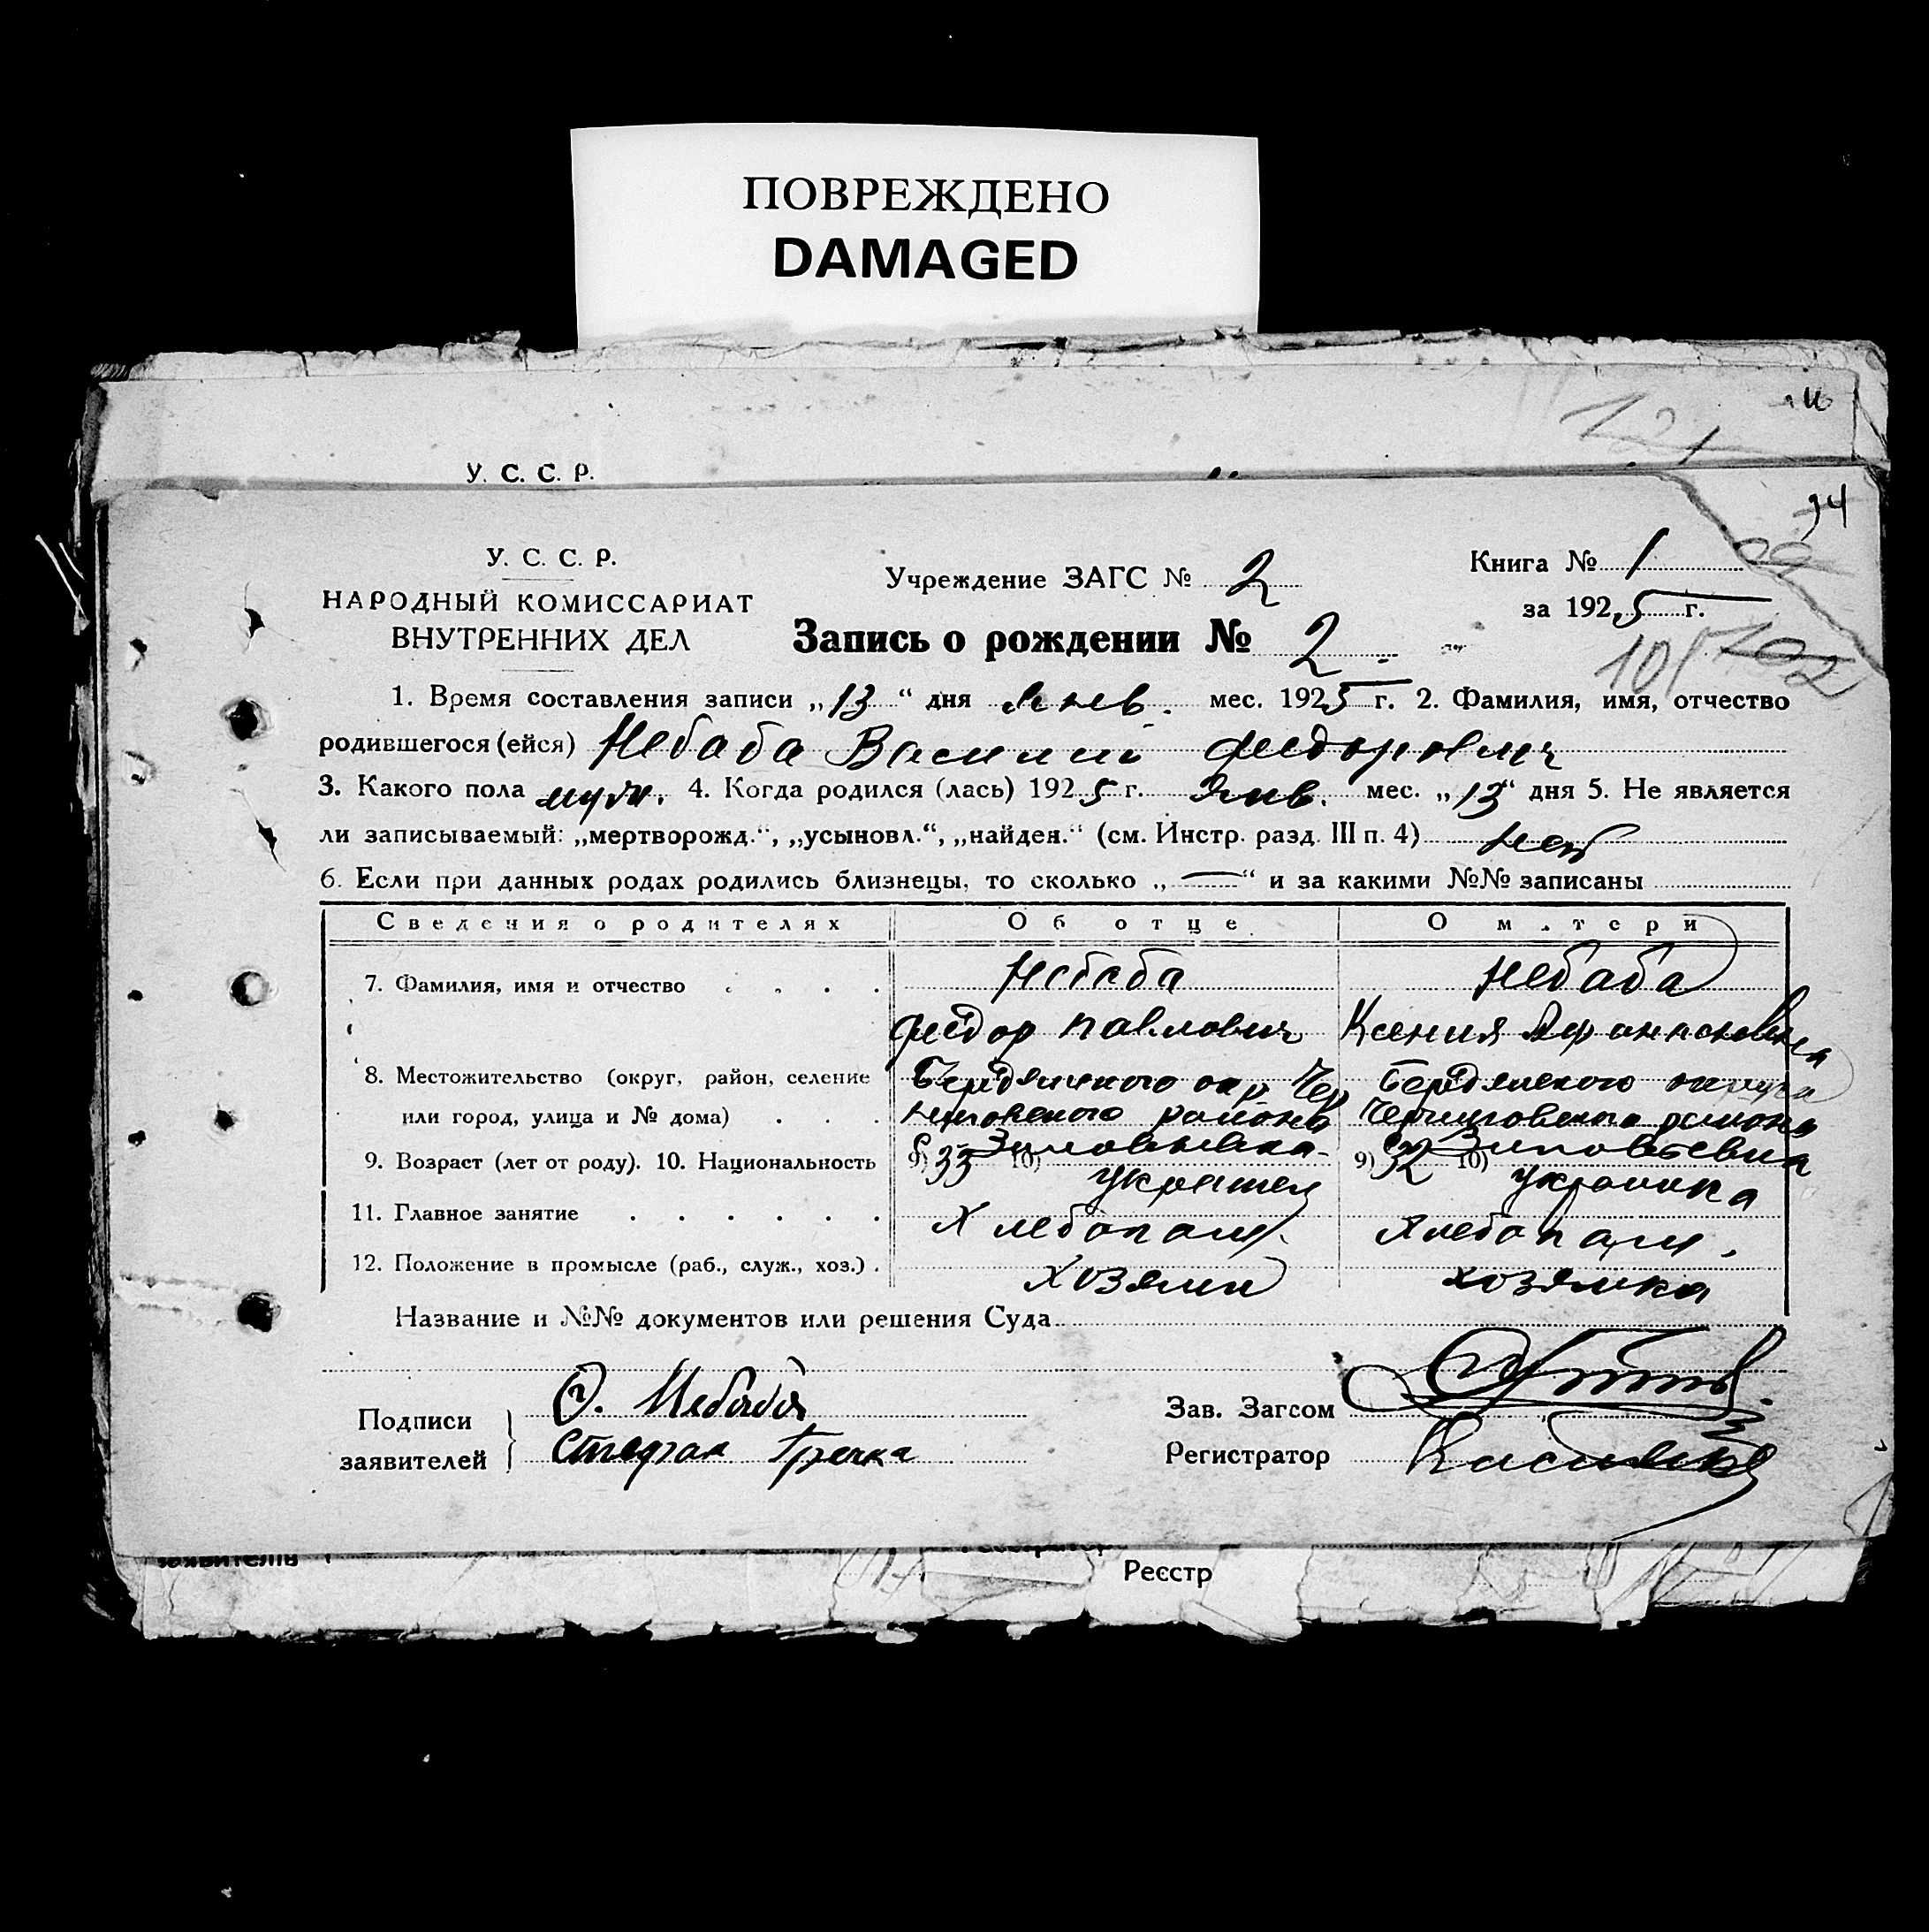 ПОВРЕЖДЕНО
DAMAGED
У. С. С. Р.
94
У. С. С. Р.
НАРОДНЫЙ КОМИССАРИАТ
ВНУТРЕННИХ ДЕЛ
Учреждение ЗАГС № 2
Книга № 1
за 1925 г.
Запись о рождении № 2
101 102
1. Время составления записи „13“ дня Янв. мес. 1925 г. 2. Фамилия, имя, отчество
родившегося (ейся) Небаба Василий Федорович
3. Какого пола муж. 4. Когда родился (лась) 1925 г. Янв. мес. „13“ дня 5. Не является
ли записываемый: „мертворожд.“, „усыновл.“, „найден.“ (см. Инстр. разд. III п. 4) нет
6. Если при данных родах родились близнецы, то сколько „—“ и за какими №№ записаны
Сведения о родителях Об отце О матери
7. Фамилия, имя и отчество . . . . Небаба Небаба
Федор Павлович Ксения Афанасовна
8. Местожительство (округ, район, селение Бердянского окр Чер Бердянского округа
или город, улица и № дома) . . . ниговского района Черниговского района
с. Зиновьевка с. Зиновьевка
9. Возраст (лет от роду). 10. Национальность 9) 33 10) украинец 9) 32 10) украинка
11. Главное занятие . . . . . . Хлебопаш. Хлебопаш.
12. Положение в промысле (раб., служ., хоз.) . хозяин хозяйка
Название и №№ документов или решения Суда
Подписи
заявителей
Ф. Небаба
Стефан Гречка
Зав. Загсом
Регистратор
заявителів
Реєстр